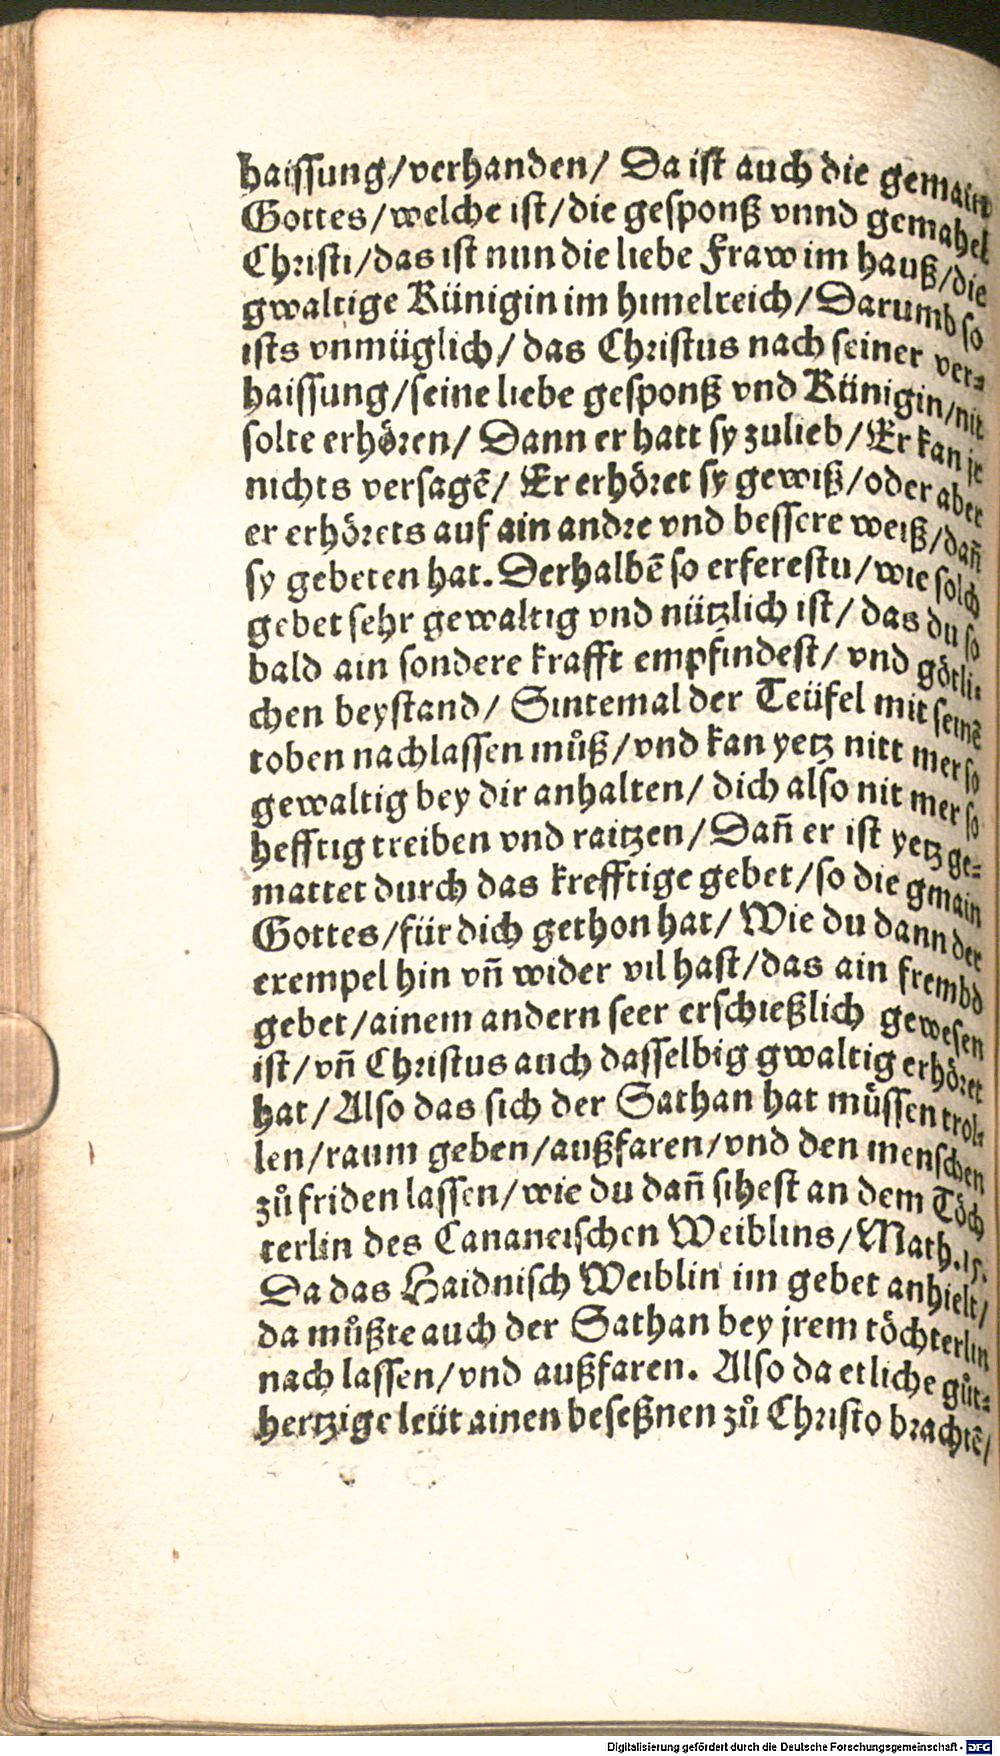 haissung/verhanden/ Da ist auch die gemain
Gottes/welche ist/die gesponß vnnd gemahel
Christi/das ist nun die liebe Fraw im hauß/die
gwaltige Künigin im himelreich/Darumb so
ists vnmüglich/ das Christus nach seiner ver⸗
haissung/seine liebe gesponß vnd Künigin/nit
solte erhören/ Dann er hatt sy zulieb/Er kan jr
nichts versagē/ Er erhöret sy gewiß/oder aber
er erhörets auf ain andre vnd bessere weiß/dañ
sy gebeten hat. Derhalbē so erferestu/wie solch
gebet sehr gewaltig vnd nützlich ist/ das du so
bald ain sondere krafft empfindest/ vnd götli⸗
chen beystand/ Sintemal der Teüfel mit seinē
toben nachlassen můß/vnd kan yetz nitt mer so
gewaltig bey dir anhalten/ dich also nit mer so
hefftig treiben vnd raitzen/Dañ er ist yetz ge⸗
mattet durch das krefftige gebet/so die gmain
Gottes/für dich gethon hat/ Wie du dann der
exempel hin vñ wider vil hast/das ain frembd
gebet/ainem andern seer erschießlich gewesen
ist/vñ Christus auch dasselbig gwaltig erhöret
hat/Also das sich der Sathan hat müssen trol⸗
len/raum geben/außfaren/vnd den menschen
zů friden lassen/wie du dañ sihest an dem Töch
terlin des Cananeischen Weiblins/Math.15.
Da das Haidnisch Weiblin im gebet anhielt/
da můßte auch der Sathan bey jrem töchterlin
nach lassen/vnd außfaren. Also da etliche gůt⸗
hertzige leüt ainen beseßnen zů Christo brachtē/
Digitalisierung gefördert durch die Deutsche Forschungsgemeinschaft - DFG